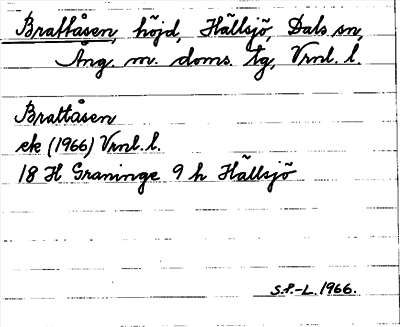 Brattåsen, höjd, Hällsjö, Dals sn,
Ång. m. doms. tg, Vrnl. l.
Brattåsen
ek (1966) Vrnl. l.
18 H Graninge 9 h Hällsjö
S.P.-L. 1966.